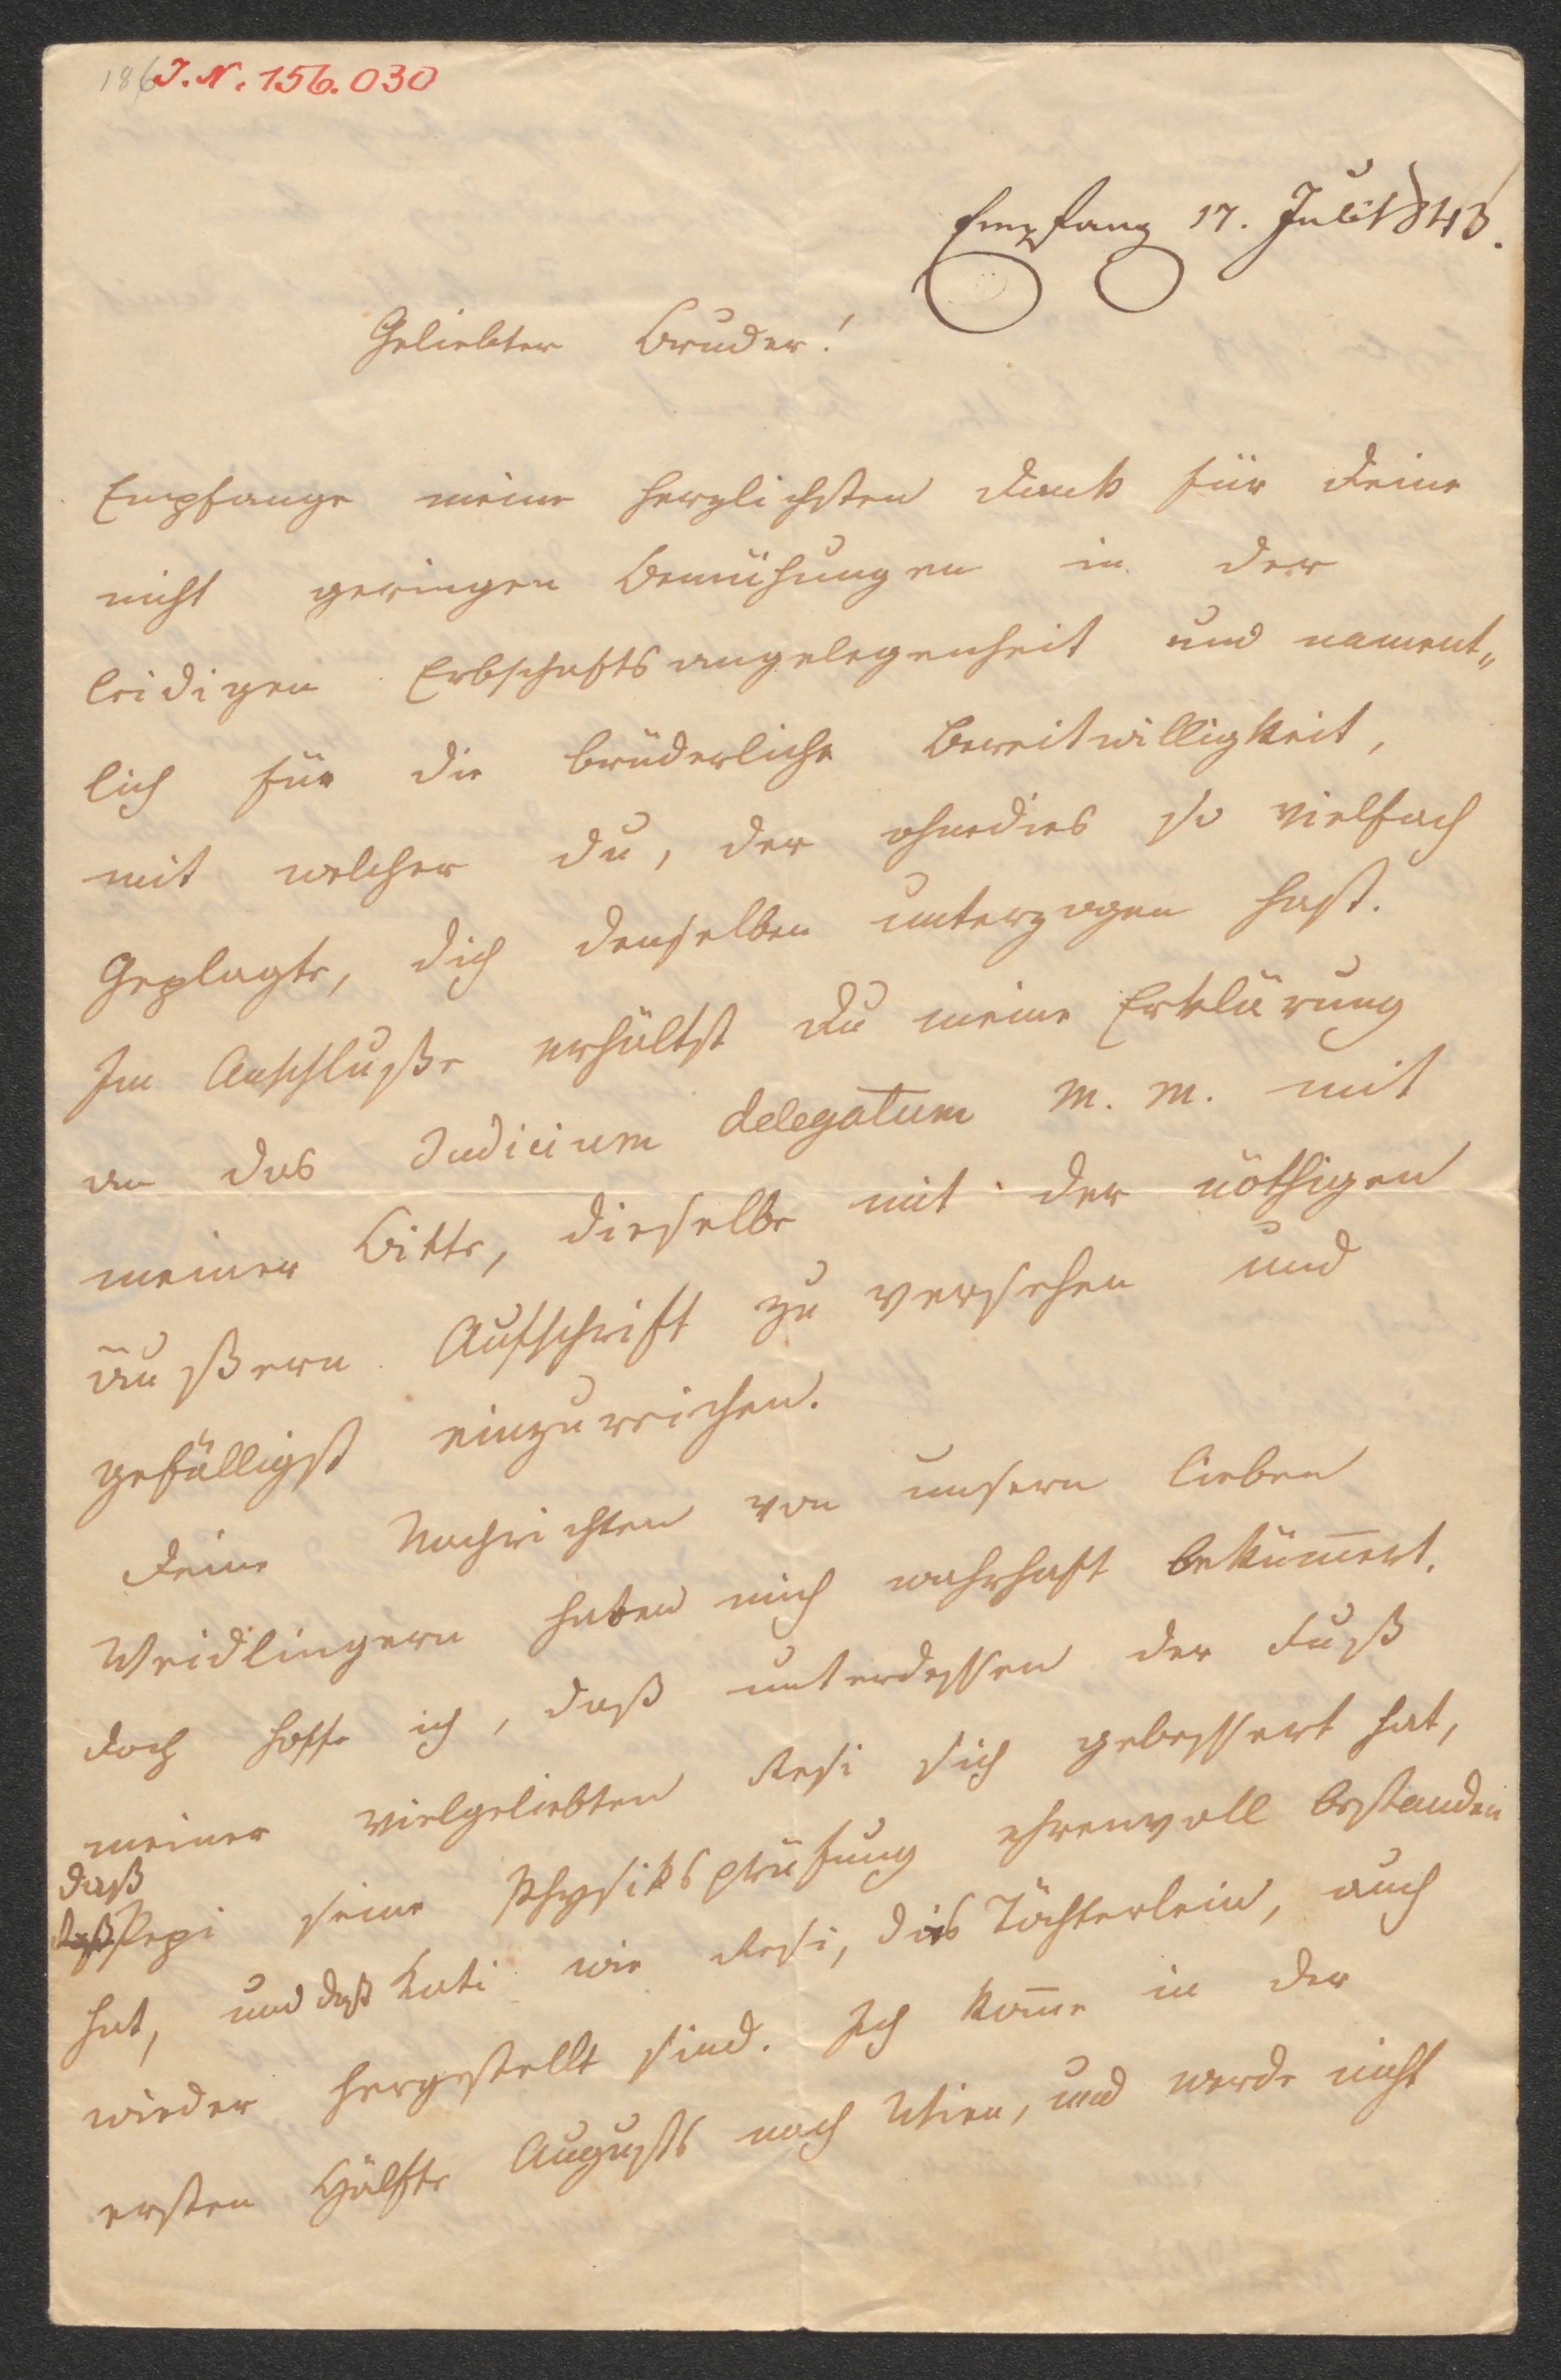 186
I. N. 156.030
Empfang 17. Juli 1843.
Geliebter Bruder!
Empfange meine herzlichsten Dank für Deine
nicht geringen Bemühungen in der
leidigen Erbschaftsangelegenheit und nament„
lich für die brüderliche Bereitwilligkeit,
mit welcher Du, der ohnedies so vielfach
Geplagte, Dich denselben unterzogen hast.
Im Anschluße erhältst Du meine Erklärung
an das Judicium delegatum m. m. mit
meiner Bitte, dieselbe mit der nöthigen
äußern Aufschrift zu versehen und
gefälligst einzureichen.
Deine Nachrichten von unsern lieben
Weidlingern haben mich wahrhaft beküm̅ert.
Doch hoffe ich, daß unterdessen der Fuß
meiner vielgeliebten Resi sich gebessert hat,
daß
Pepi seine Physiksprüfung ehrenvoll bestanden
hat, und daß Kati wie Resi, das Töchterlein, auch
wieder hergestellt sind. Ich kom̅e in der
ersten Hälfte Augusts nach Wien, und werde nicht